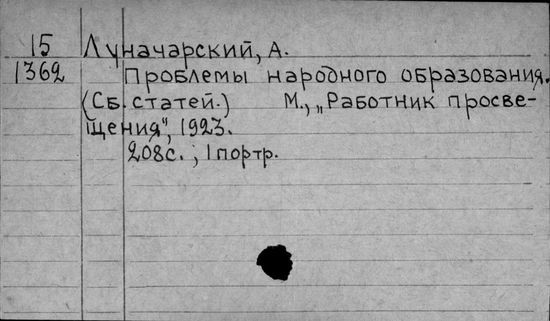 15 Луначарский, А.
1362 Проблемы народного образования.
(Сб. статей.) М., „Работник просве-
щения", 1923.
208с., 1 портр.